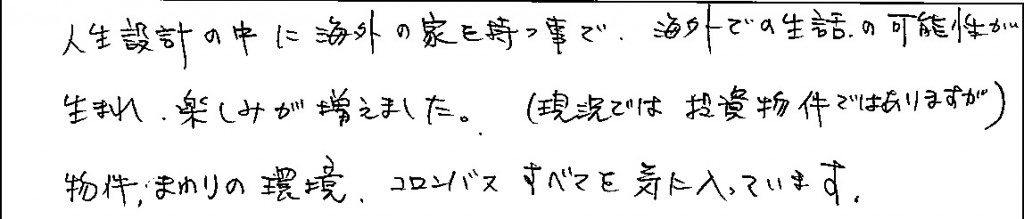 人生設計の中に海外の家を持つ事で、海外での生活の可能性が
生まれ、楽しみが増えました。(現況では投資物件ではありますが)
物件、まわりの環境、コロンバスすべてを気に入っています。